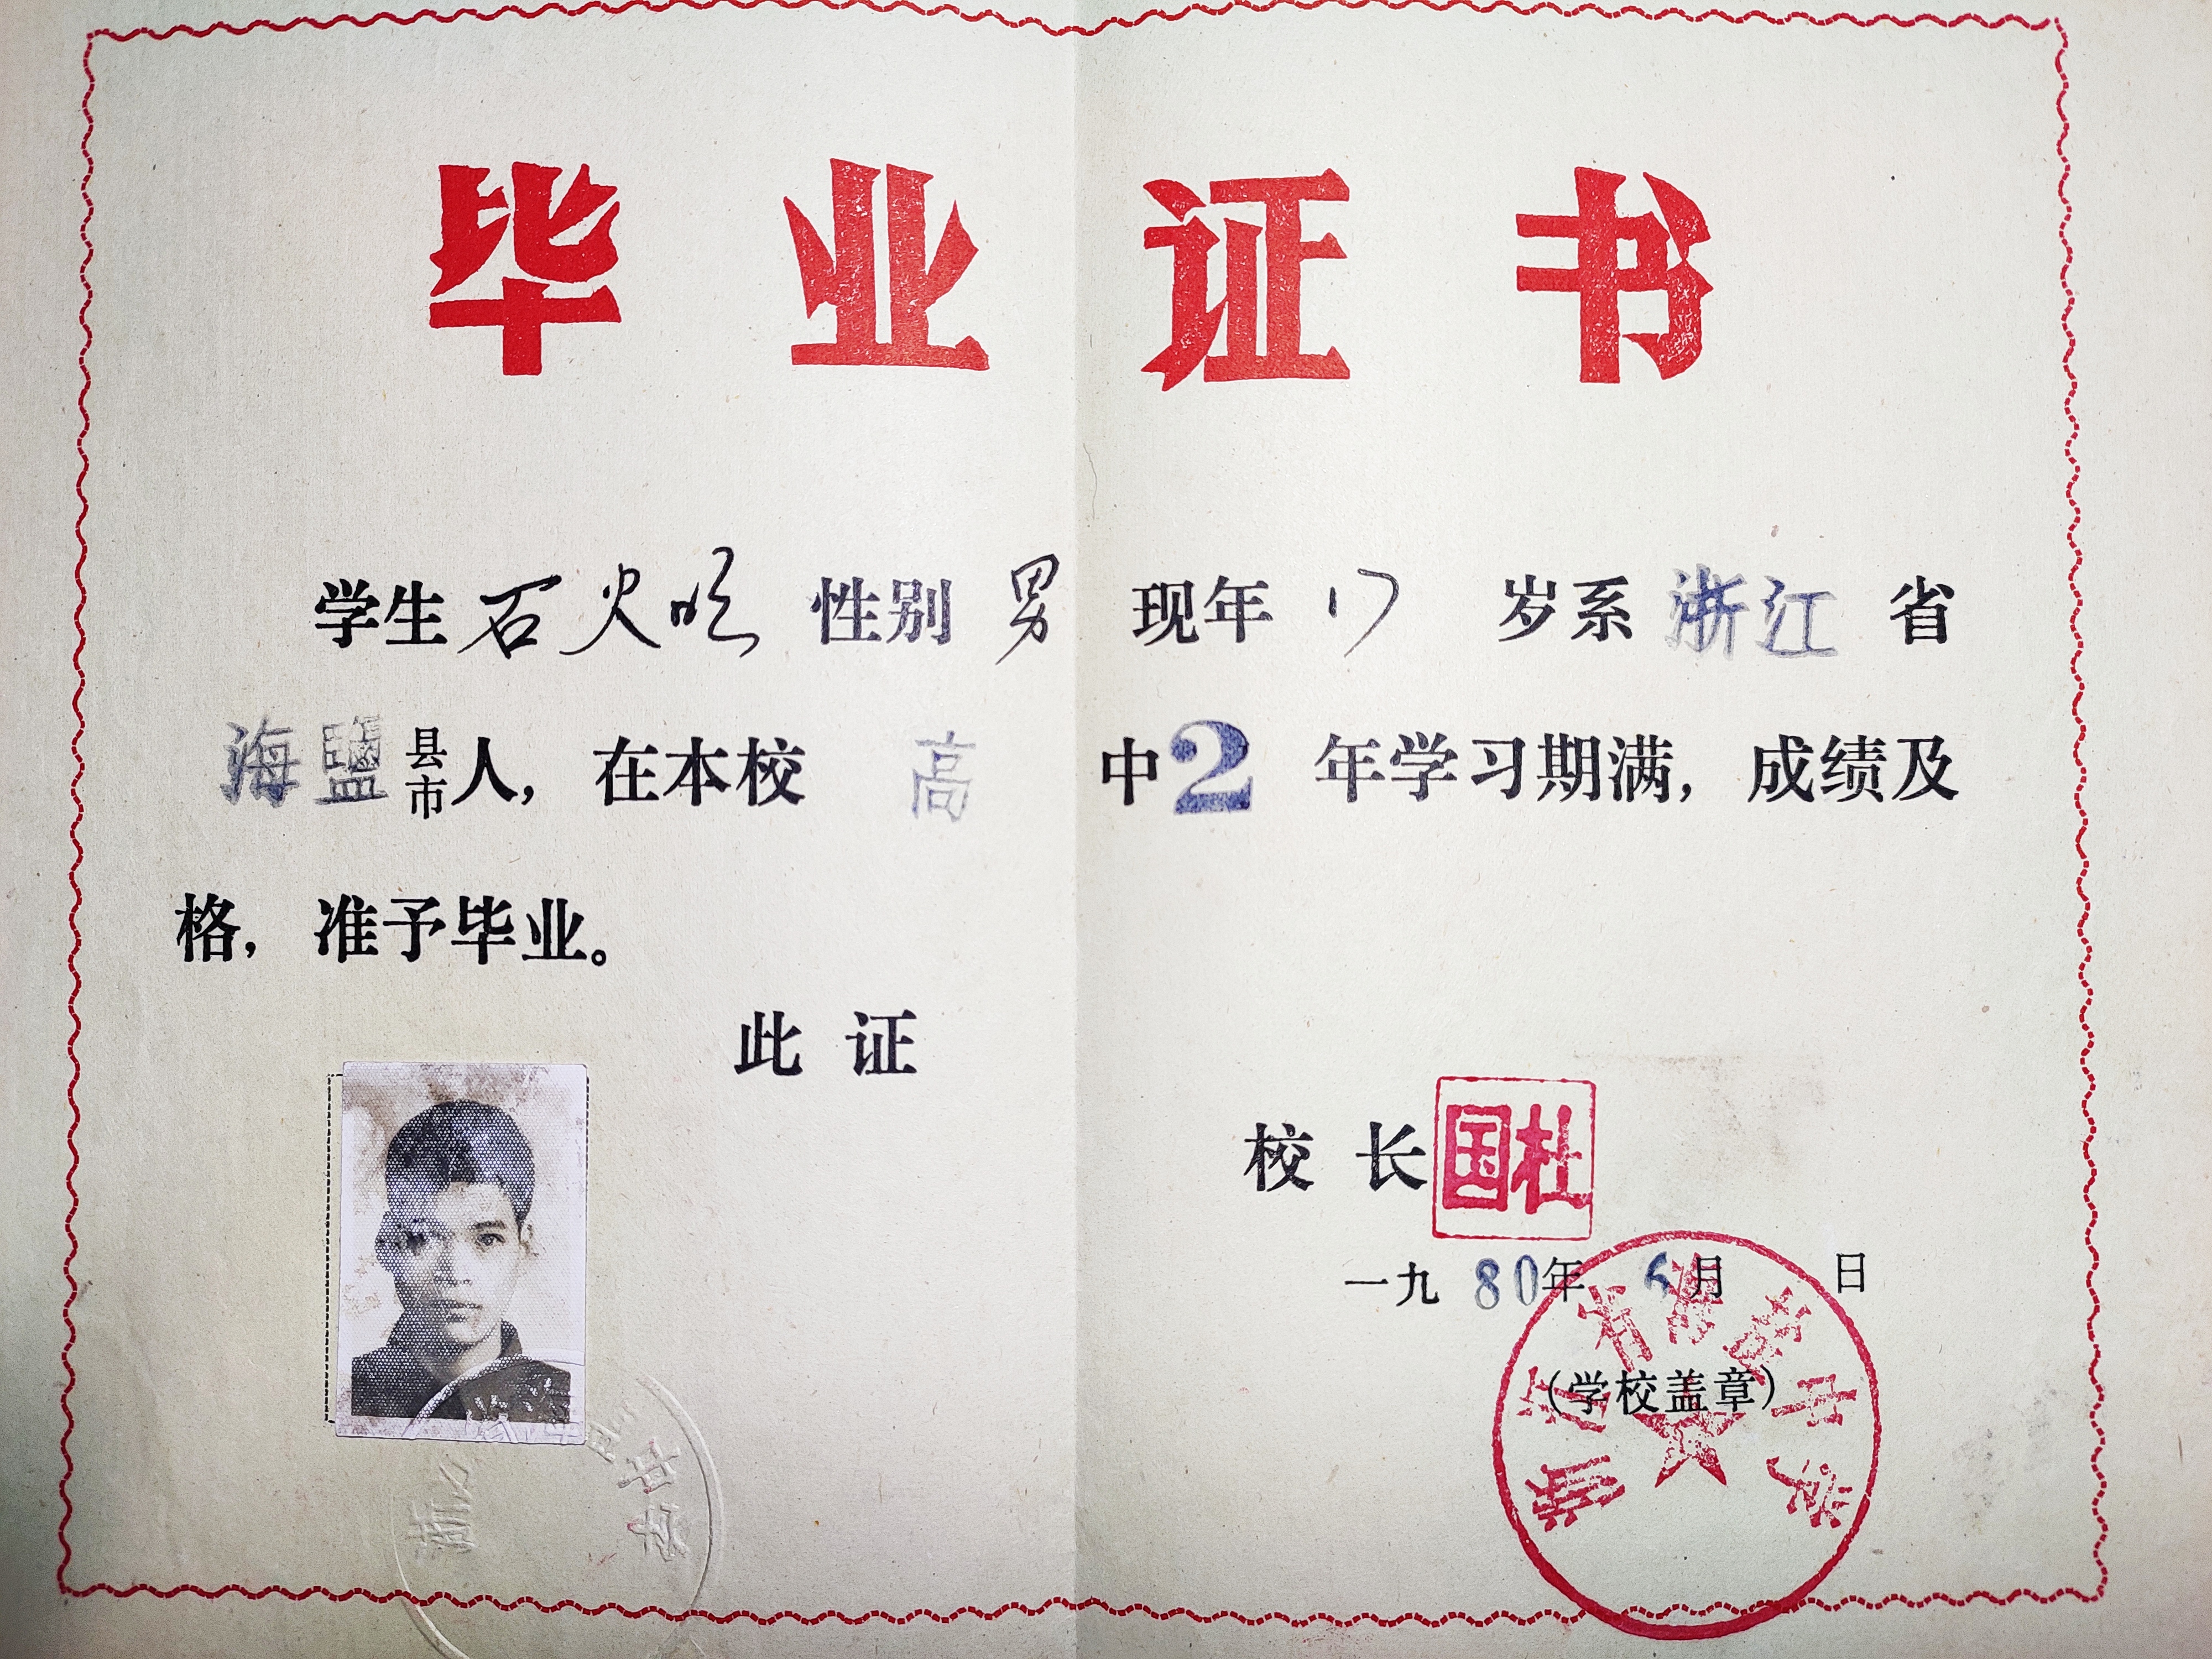 毕业证书
学生石火明 性别 男 现年 17 岁系 浙江 省
海鹽县市人，在本校 高 中2 年学习期满，成绩及
格，准予毕业。
此 证
校 长 杜国
一九80年 6月 日
(学校盖章)
浙江省海盐中学